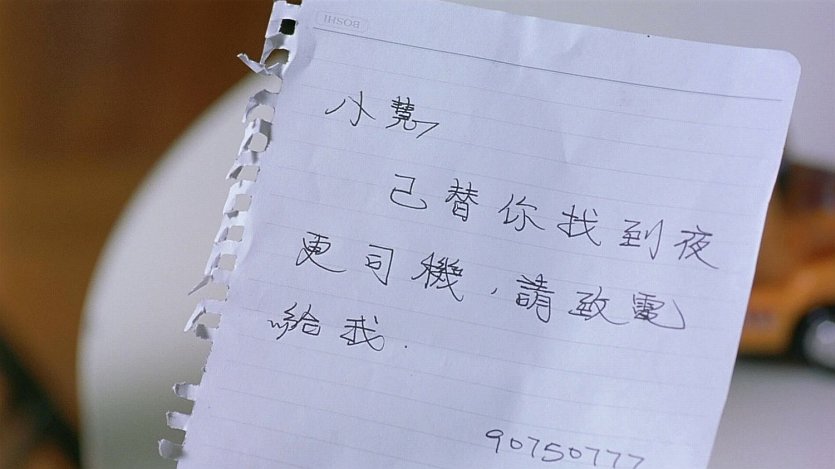 BOSHI
小慧,
己替你找到夜
更司機,請致電
給我.
90750777